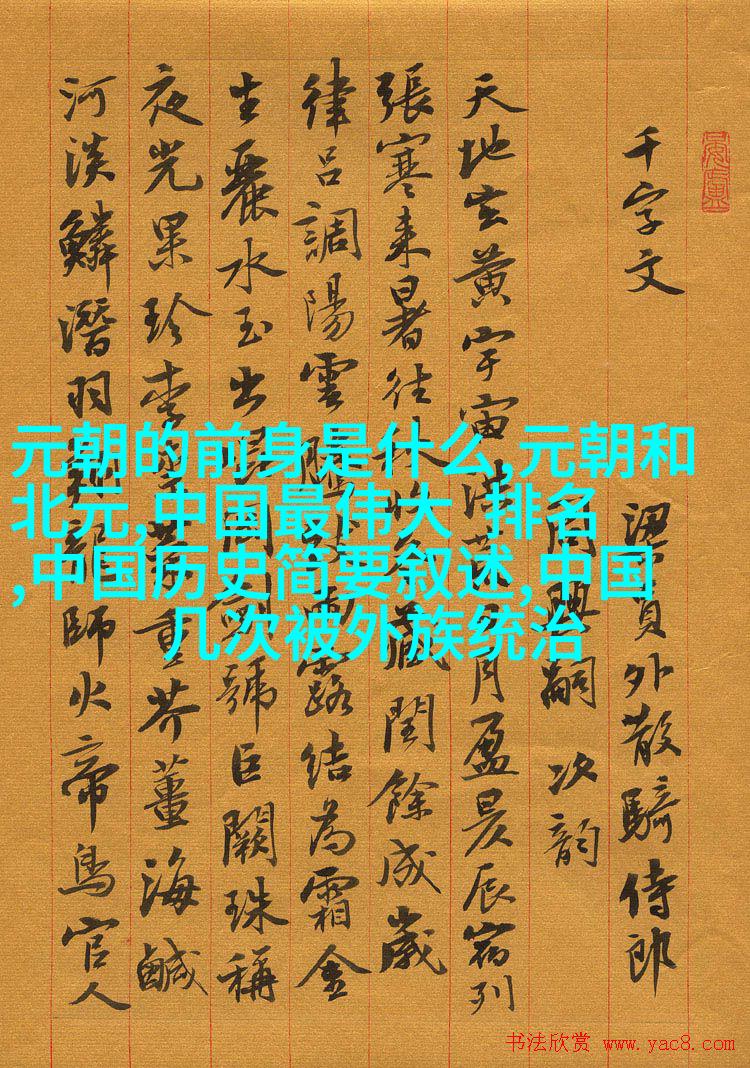 千字文
梁員外散騎侍郎
周興嗣 次韵
天地玄黃宇宙洪荒日月盈昃辰宿列
張寒來暑往秋收冬藏閏餘成歲
律呂調陽雲騰致雨露結為霜金
生麗水玉出崑岡劍號巨闕珠稱
夜光果珍李柰菜重芥薑海鹹
河淡鱗潛羽翔龍師火帝鳥官人
元朝的前身是什么,元朝和
北元,中国最伟大 排名
,中国历史简要叙述,中国
几次被外族统治
书法欣赏 www.yac8.com